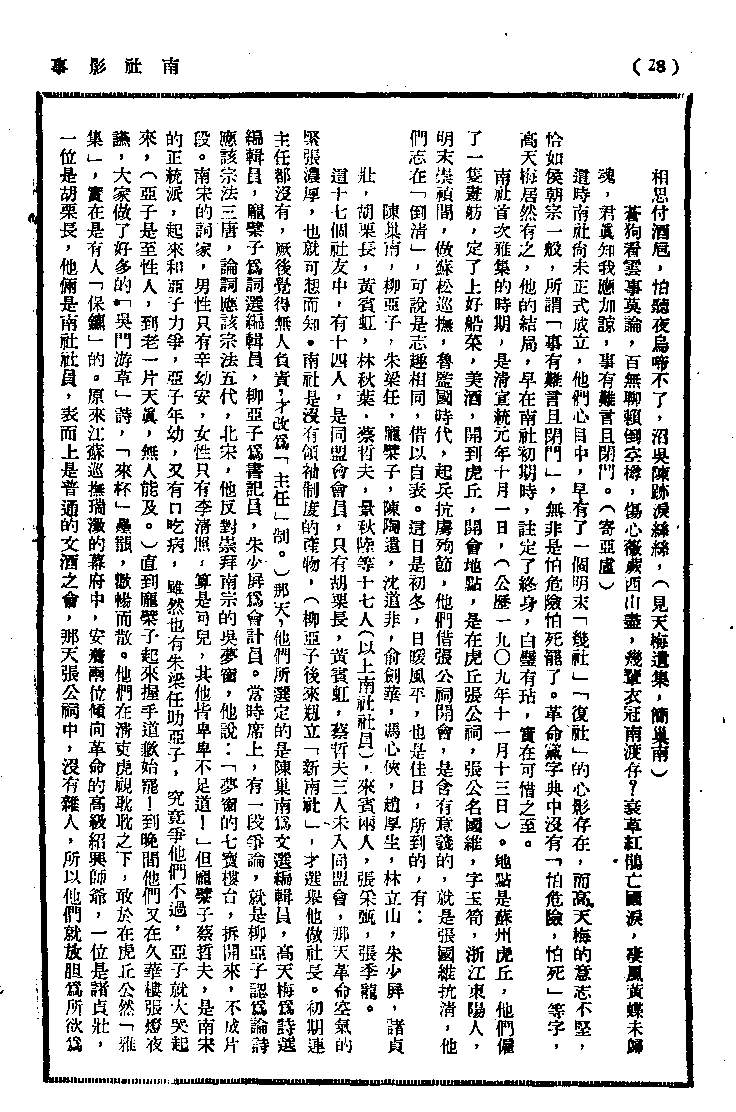 (28)
南社影事
相思付酒巵，怕聽夜烏啼不了，沼吳陳跡淚絲絲，（見天梅遺集，簡巢南）
蒼狗看雲事莫論，百無聊賴倒空樽，傷心薇蕨西山盡，幾輩衣冠南渡存？衰草紅鵑亡國淚，凄風黃蝶未歸
魂，君眞知我應加諒，事有難言且閉門。（寄亞盧）
這時南社尙未正式成立，他們心目中，早有了一個明末「幾社」「復社」的心影存在，而高天梅的意志不堅，
恰如侯朝宗一般，所謂「事有難言且閉門」，無非是怕危險怕死罷了。革命黨字典中沒有「怕危險，怕死」等字，
高天梅居然有之，他的結局，早在南社初期時，註定了終身，白璧有玷，實在可惜之至。
南社首次雅集的時期，是清宣統元年十月一日，（公歷一九〇九年十一月十三日）。地點是蘇州虎丘，他們僱
了一隻畫舫，定了上好船菜，美酒，開到虎丘，開會地點，是在虎丘張公祠，張公名國維，字玉笥，浙江東陽人，
明末崇禎間，做蘇松巡撫，魯監國時代，起兵抗虜殉節，他們借張公祠開會，是含有意義的，就是張國維抗清，他
們志在「倒清」，可說是志趣相同，借以自表。這日是初冬，日暖風平，也是佳日，所到的，有：
陳巢南，柳亞子，朱梁任，龐檗子，陳陶遺，沈道非，俞劍華，馮心俠，趙厚生，林立山，朱少屏，諸貞
壯，胡栗長，黃賓虹，林秋葉，蔡哲夫，景秋陸等十七人（以上南社社員），來賓兩人，張采甄，張季龍。
這十七個社友中，有十四人，是同盟會會員，只有胡栗長，黃賓虹，蔡哲夫三人未入同盟會，那天革命空氣的
緊張濃厚，也就可想而知。南社是沒有領袖制度的產物，（柳亞子後來剏立「新南社」，才選舉他做社長。初期連
主任都沒有，厥後覺得無人負責，才改爲「主任」制。）那天，他們所選定的是陳巢南爲文選編輯員，高天梅爲詩選
編輯員，龐檗子爲詞選編輯員，柳亞子爲書記員，朱少屏爲會計員。當時席上，有一段爭論，就是柳亞子認爲論詩
應該宗法三唐，論詞應該宗法五代，北宋，他反對崇拜南宗的吳夢窗，他說：「夢窗的七寶樓台，拆開來，不成片
段。南宋的詞家，男性只有辛幼安，女性只有李清照，算是可兒，其他皆卑卑不足道！」但龐檗子蔡哲夫，是南宋
的正統派，起來和亞子力爭，亞子年幼，又有口吃病，雖然也有朱梁任助亞子，究竟爭他們不過，亞子就大哭起
來，（亞子是至性人，到老一片天眞，無人能及。）直到龐檗子起來握手道歉始罷！到晚間他們又在久華樓張燈夜
讌，大家做了好多的「吳門游草」詩，「來杯」疊韻，歡暢而散。他們在清吏虎視耽耽之下，敢於在虎丘公然「雅
集」，實在是有人「保鑣」的。原來江蘇巡撫瑞澂的幕府中，安着兩位傾向革命的高級紹興師爺，一位是諸貞壯，
一位是胡栗長，他倆是南社社員，表面上是普通的文酒之會，那天張公祠中，沒有雜人，所以他們就放胆爲所欲爲